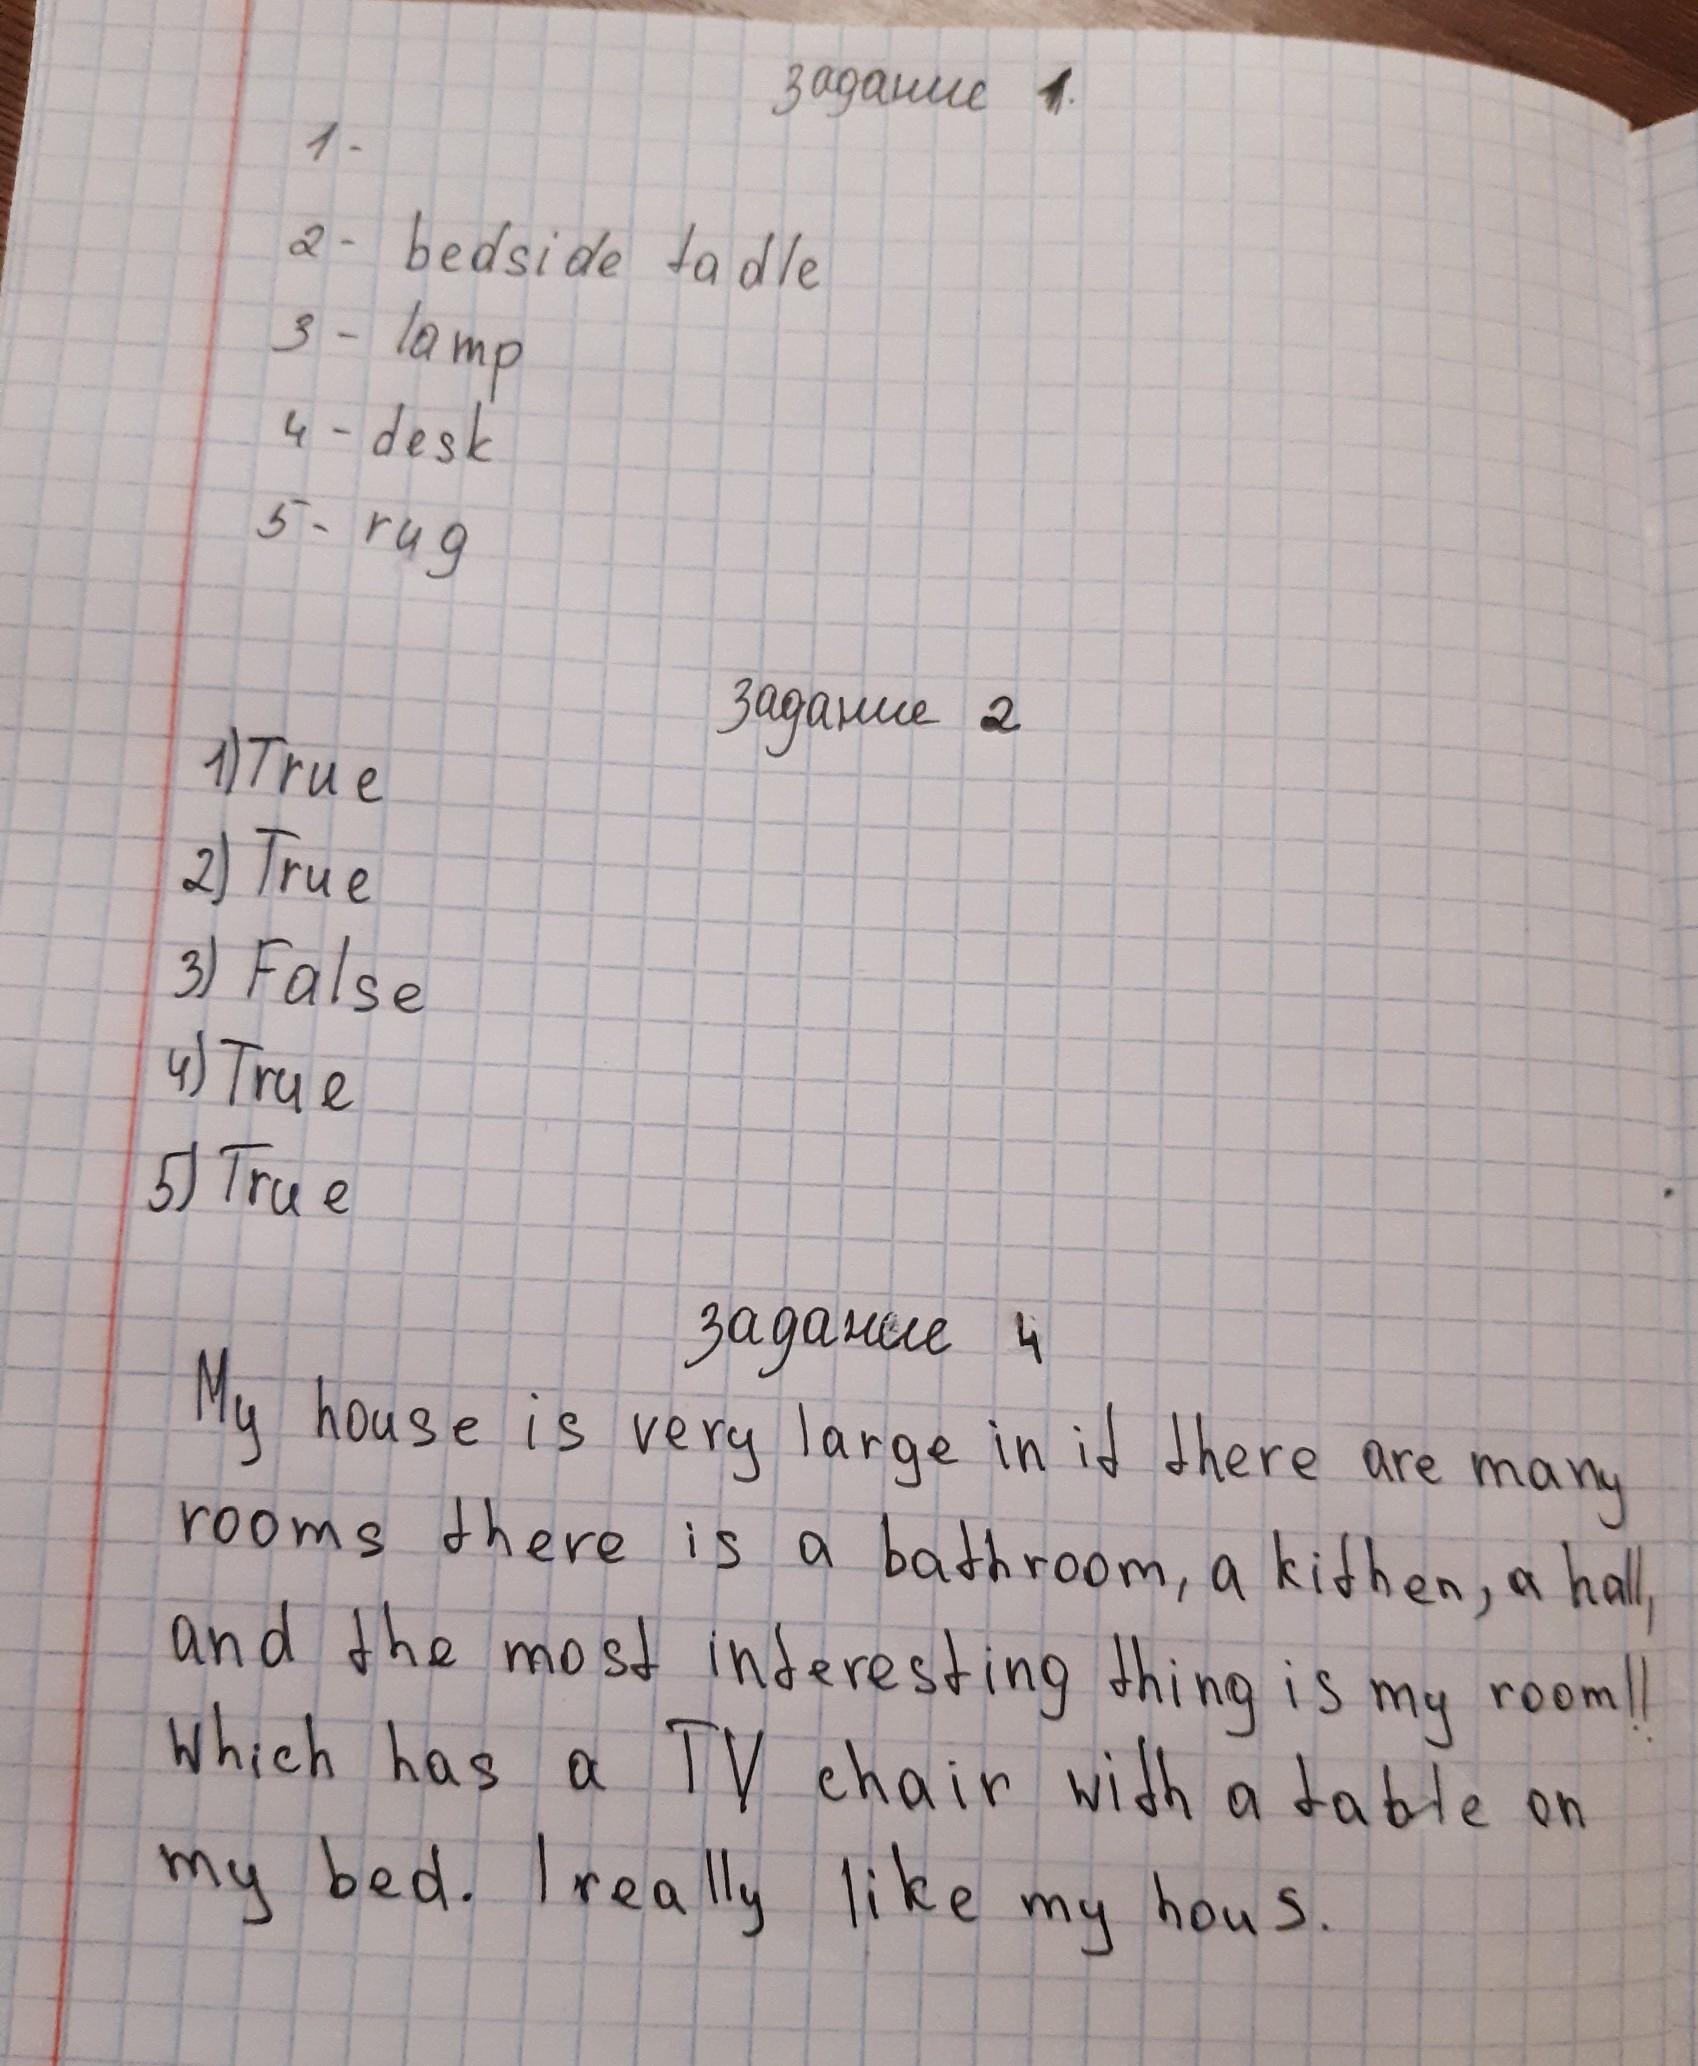 Задание 1.
1-
2- bedside tadle
3- lamp
4- desk
5- rug
Задание 2
1) True
2) True
3) False
4) True
5) True
Задание 4
My house is very large in it there are many
rooms there is a bathroom, a kithen, a hall,
and the most interesting thing is my room!!
Which has a TV chair with a table on
my bed. I really like my hous.